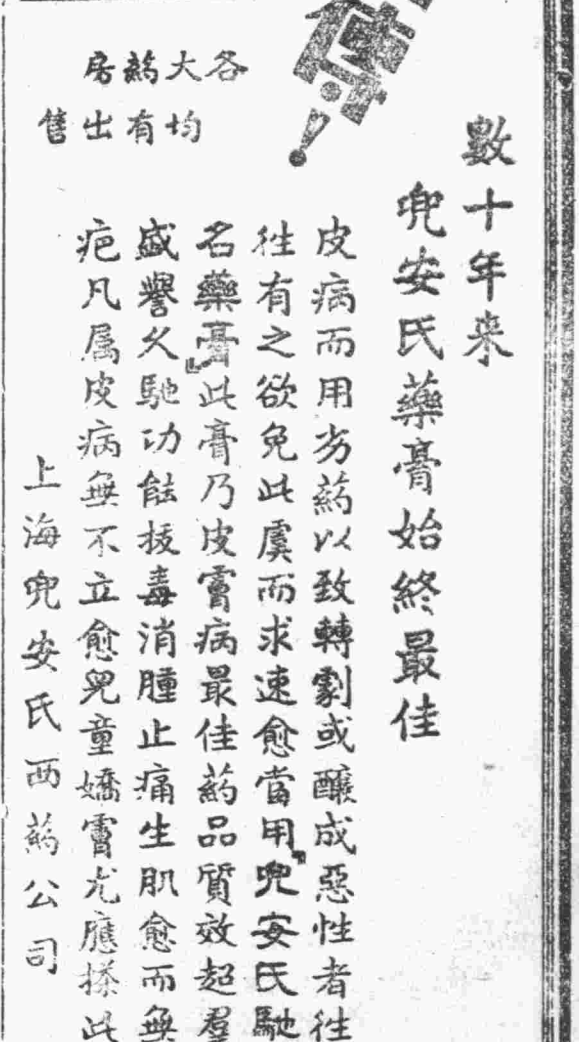 傳！
數十年来
兜安氏藥膏始終最佳
皮病而用劣葯以致轉劇或釀成惡性者往
往有之欲免此虞而求速愈當用『兜安氏馳
名藥膏』此膏乃皮膚病最佳葯品質效超羣
盛譽久馳功能拔毒消腫止痛生肌愈而無
疤凡属皮病無不立愈兒童嬌膚尤應搽此
上海兜安氏西葯公司
各大葯房
均有出售